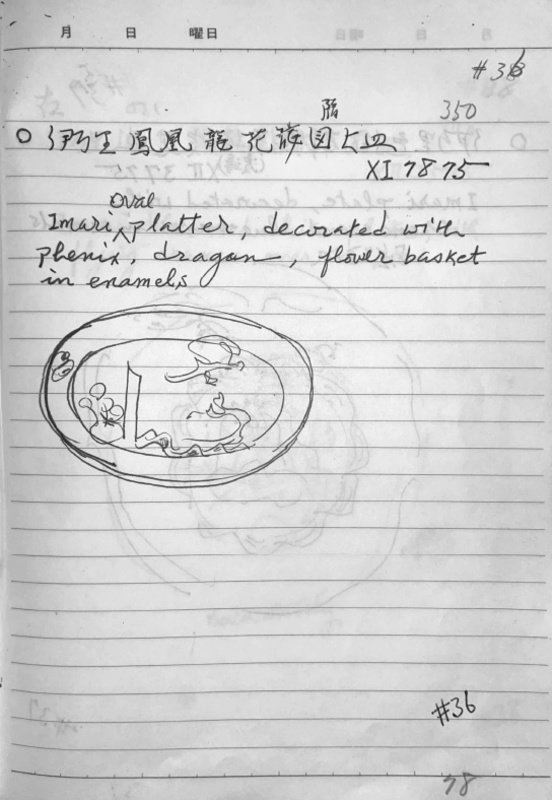 月 日 曜日
#36
350
伊万里 鳳凰 龍 花 図大皿
XI 7875
oval
Imari platter, decorated with
phenix, dragon, flower basket
in enamels
#36
78